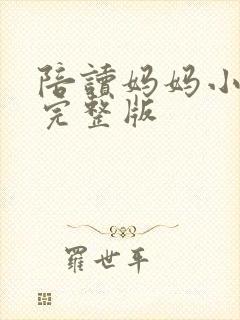 陪讀妈妈小
完整版
羅世平